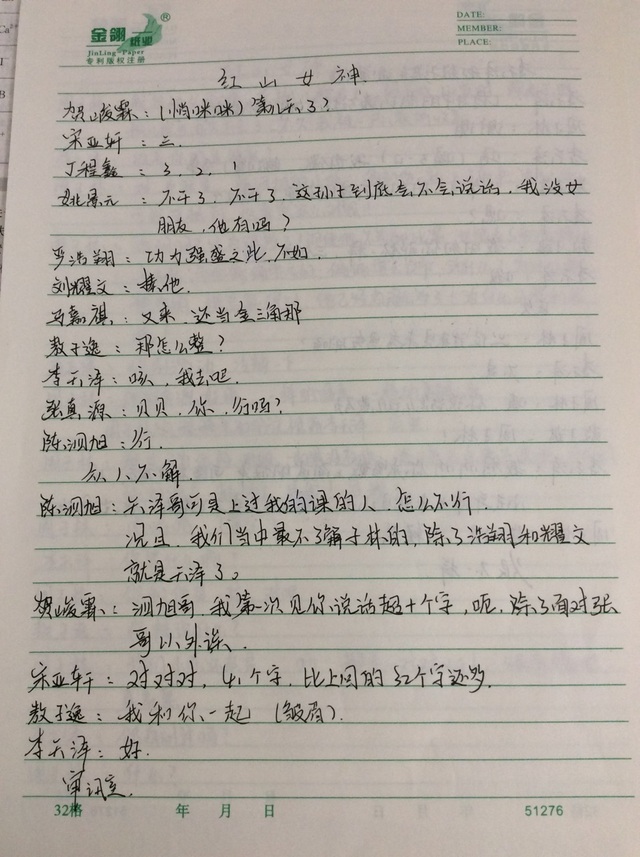 金翎纸业®
JinLing-Paper
专利版权注册
DATE:
MEMBER:
PLACE:
红山女神.
贺峻霖：(悄咪咪) 第几天了?
宋亚轩：三.
丁程鑫：3. 2. 1
姚景元：不干了. 不干了. 这孙子到底会不会说话, 我没女
朋友. 他有吗?
严浩翔：功力强盛之此. 不如.
刘耀文：揍他.
马嘉祺：又来. 还当金三角那
敖子逸：那怎么整?
李天泽：咳. 我去吧.
张真源：贝贝. 你. 行吗?
陈泗旭：行.
众人不解.
陈泗旭：天泽哥可是上过我的课的人. 怎么不行.
况且. 我们当中最不了解子林的, 除了浩翔和耀文
就是天泽了。
贺峻霖：泗旭哥. 我第一次见你说话超十个字, 呃, 除了面对张
哥以外诶.
宋亚轩：对对对, 41个字. 比上回的32个字还多.
敖子逸：我和你一起 (皱眉).
李天泽：好.
审讯室.
32格 年 月 日 51276